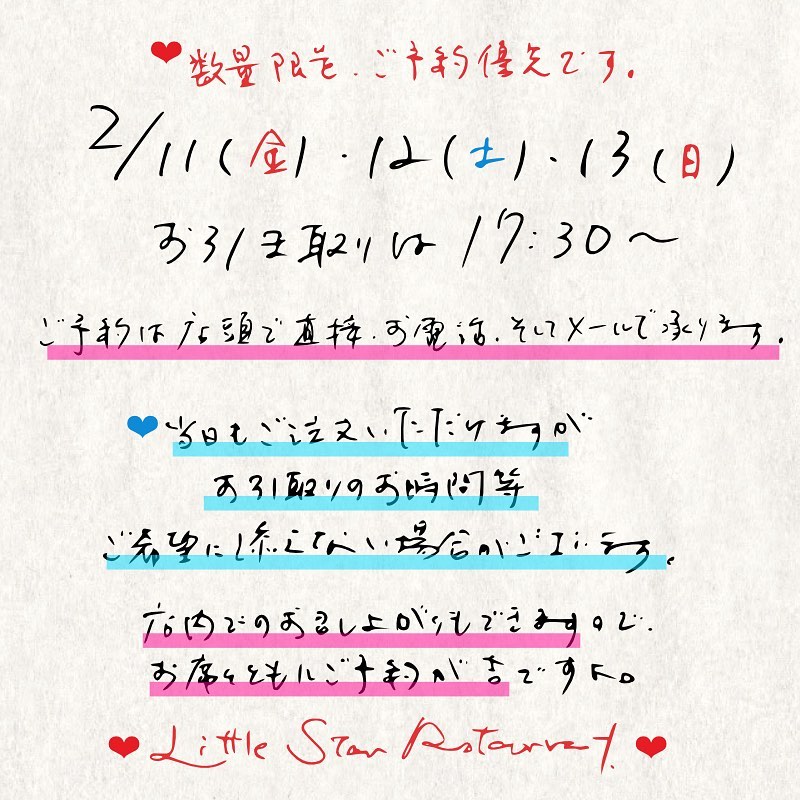 数量限定、ご予約優先です。
2/11(金)・12(土)・13(日)
お引き取りは17:30〜
ご予約は店頭で直接、お電話、そしてメールで承ります。
当日もご注文いただけますが
お引取りのお時間等
ご希望に添えない場合がございます。
店内でのお召し上がりもできますので、
お席とともにご予約が吉ですよ。
Little Star Restaurant.